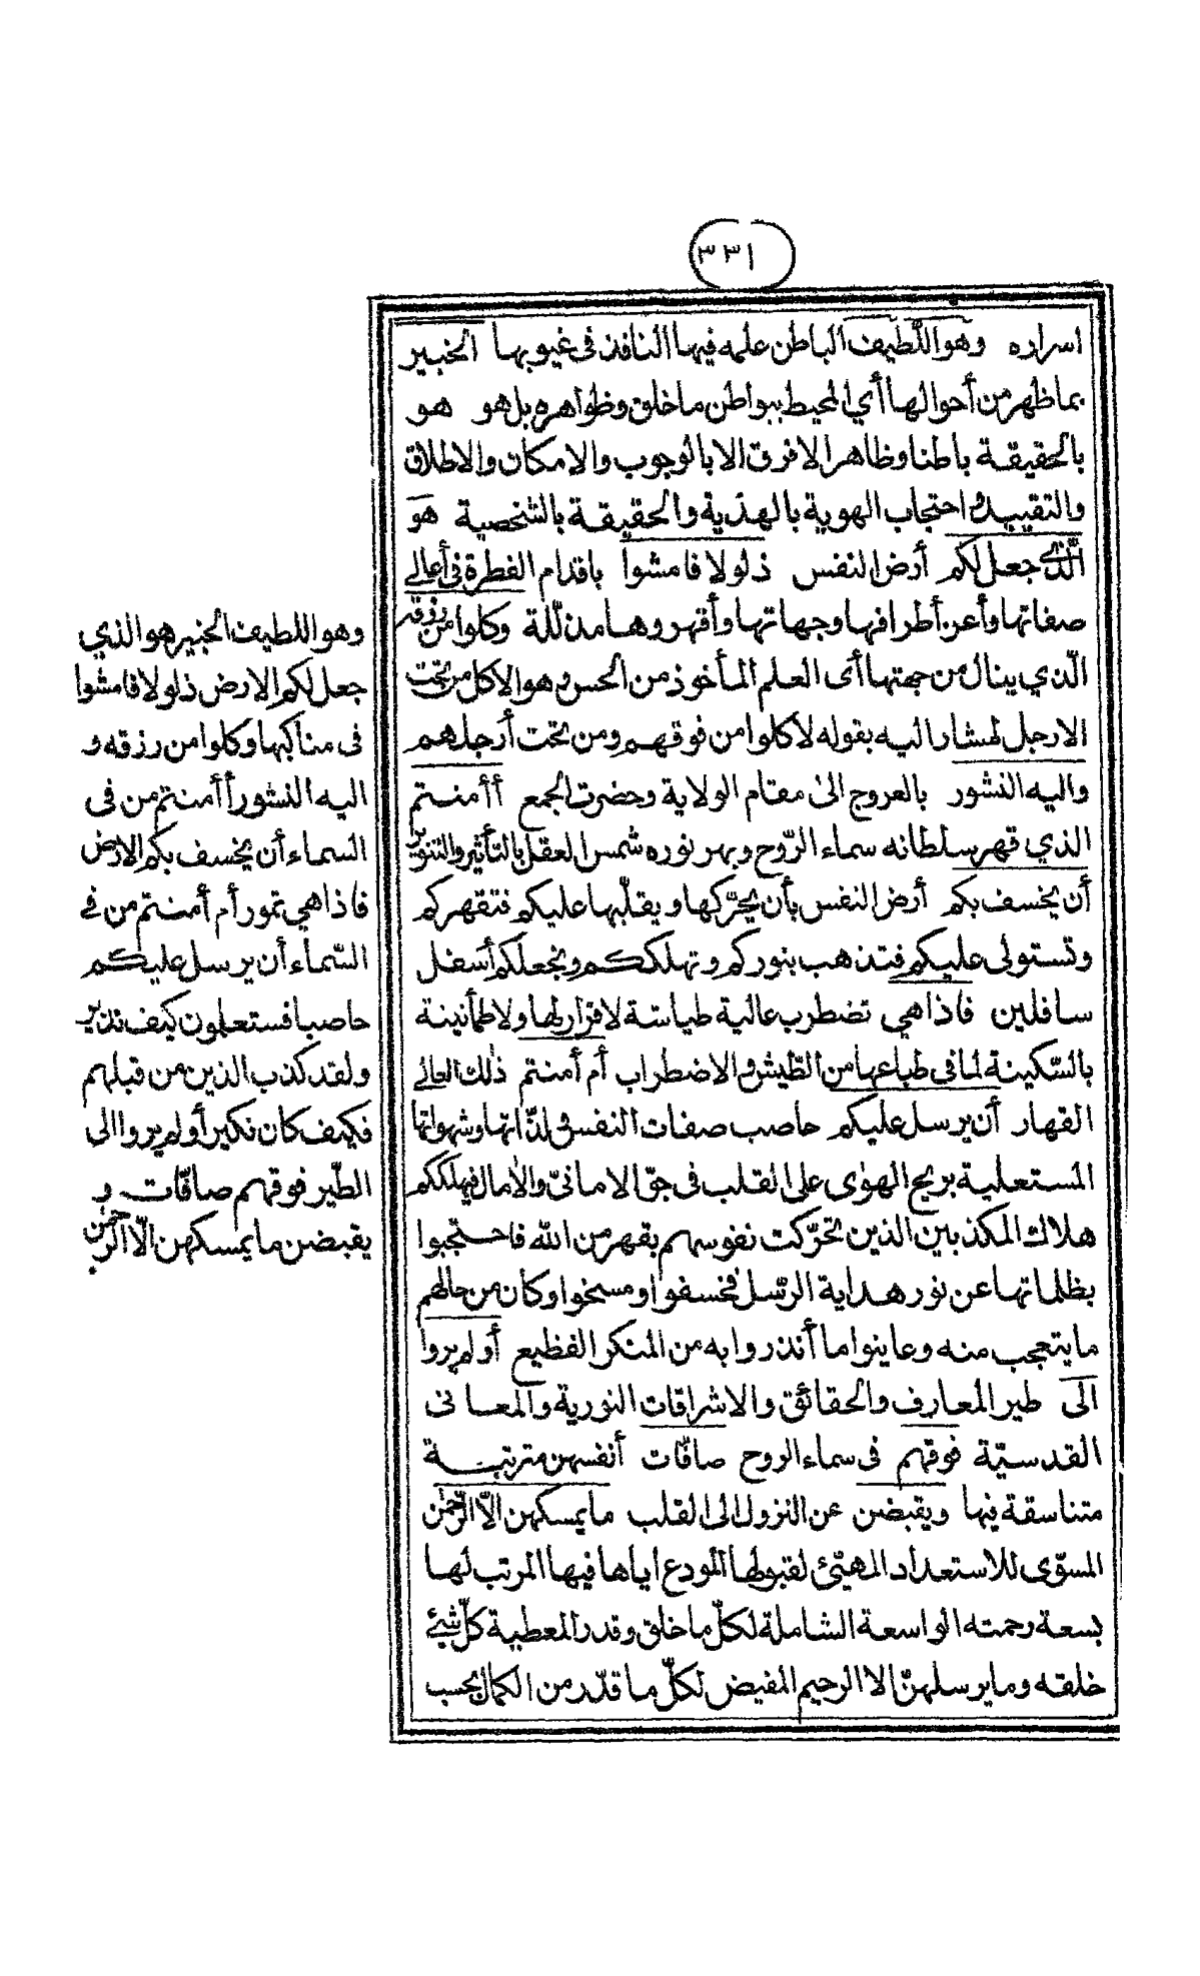 ٣٣١
اسراره وهو اللّطيف الباطن علمه فيها النافذ فى غيوبها الخبير
بما ظهر من أحوالها أي المحيط ببواطن ما خلق وظواهره بل هو هو
بالحقيقة باطنا وظاهرا لا فرق الا بالوجوب والامكان والاطلاق
والتقييد واحتجاب الهوية بالهذية والحقيقة بالشخصية هو
الّذي جعل لكم أرض النفس ذلولا فامشوا باقدام الفطرة فى أعالي
صفاتها وأعن أطرافها وجهاتها وأقهروها مذلّلة وكلوا من رزقه
الّذي ينال من جهتها أى العلم المأخوذ من الحس وهو الاكل من تحت
الارجل المشار اليه بقوله لاكلوا من فوقهم ومن تحت أرجلهم
واليه النشور بالعروج الى مقام الولاية وحضرت الجمع أأمنتم
الذي قهر سلطانه سماء الرّوح وبهر نوره شمس العقل بالتأثير والتنوير
أن يخسف بكم أرض النفس بأن يحرّكها ويقلّبها عليكم فتقهركم
وتستولى عليكم فتذهب بنوركم وتهلككم ويجعلكم أسفل
سافلين فاذا هي تضطرب عالية طياشة لا قرار لها ولا طمأنينة
بالسّكينة لما فى طباعها من الطّيش والاضطراب أم أمنتم ذلك العالي
القهار أن يرسل عليكم حاصب صفات النفس فى لذّاتها وشهواتها
المستعلية بريح الهوٰى على القلب فى جوّ الامانىّ والآمال فيهلككم
هلاك المكذبين الذين تحرّكت نفوسهم بقهر من الله فاحتجبوا
بظلماتها عن نور هداية الرّسل فخسفوا ومسخوا وكان من حالهم
ما يتعجب منه وعاينوا ما أنذروا به من المنكر الفظيع أولم يروا
الى طير المعارف والحقائق والاشراقات النورية والمعانى
القدسيّة فوقهم فى سماء الروح صافّات أنفسهن مترتبة
متناسقة فيها ويقبضن عن النزول الى القلب ما يمسكهن الّا الرّحمٰن
المسوّى للاستعداد المهيّئ لقبولها المودع اياها فيها المرتب لها
بسعة رحمته الواسعة الشاملة لكلّ ما خلق وقدر المعطية كلّ شئ
خلقه وما يرسلهنّ الا الرحيم المفيض لكلّ ما قدّر من الكمال بحسب
وهو اللطيف الخبير هو الذي
جعل لكم الارض ذلولا فامشوا
فى مناكبها وكلوا من رزقه و
اليه النشور أأمنتم من فى
السماء أن يخسف بكم الارض
فاذا هي تمور أم أمنتم من في
السّماء أن يرسل عليكم
حاصبا فستعلمون كيف نذير
ولقد كذب الذين من قبلهم
فكيف كان نكير أولم يروا الى
الطّير فوقهم صافّات و
يقبضن ما يمسكهن الّا الرّحمٰن